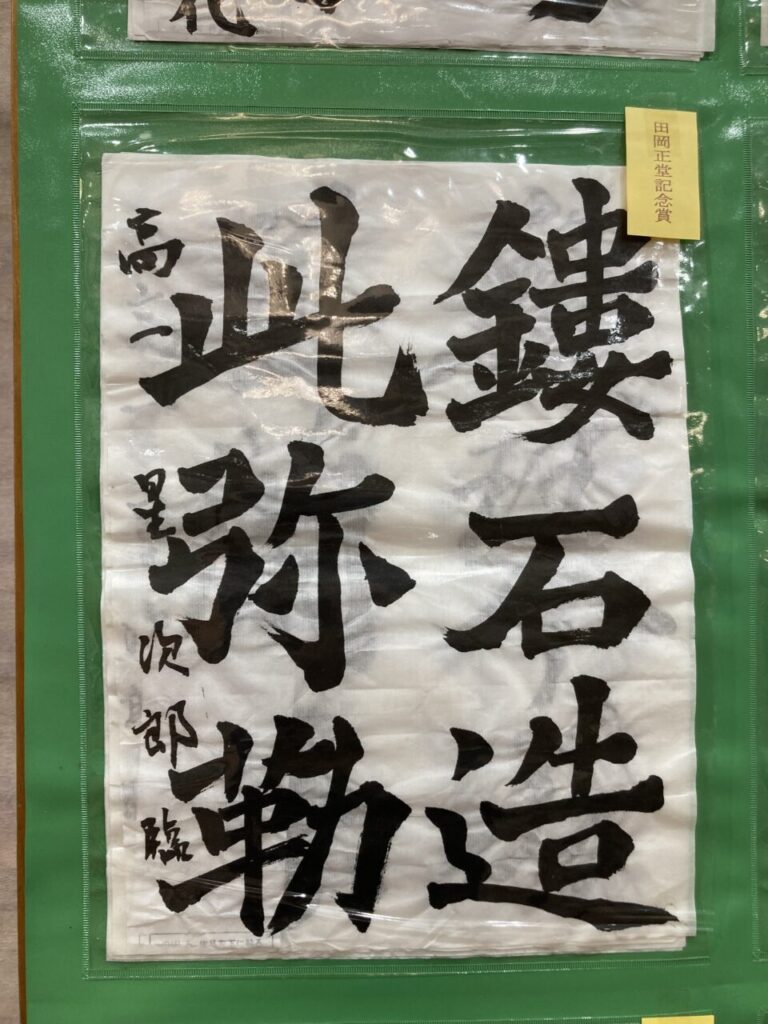 田岡正堂記念賞
鏤石造
此弥勒
高一 星次郎臨